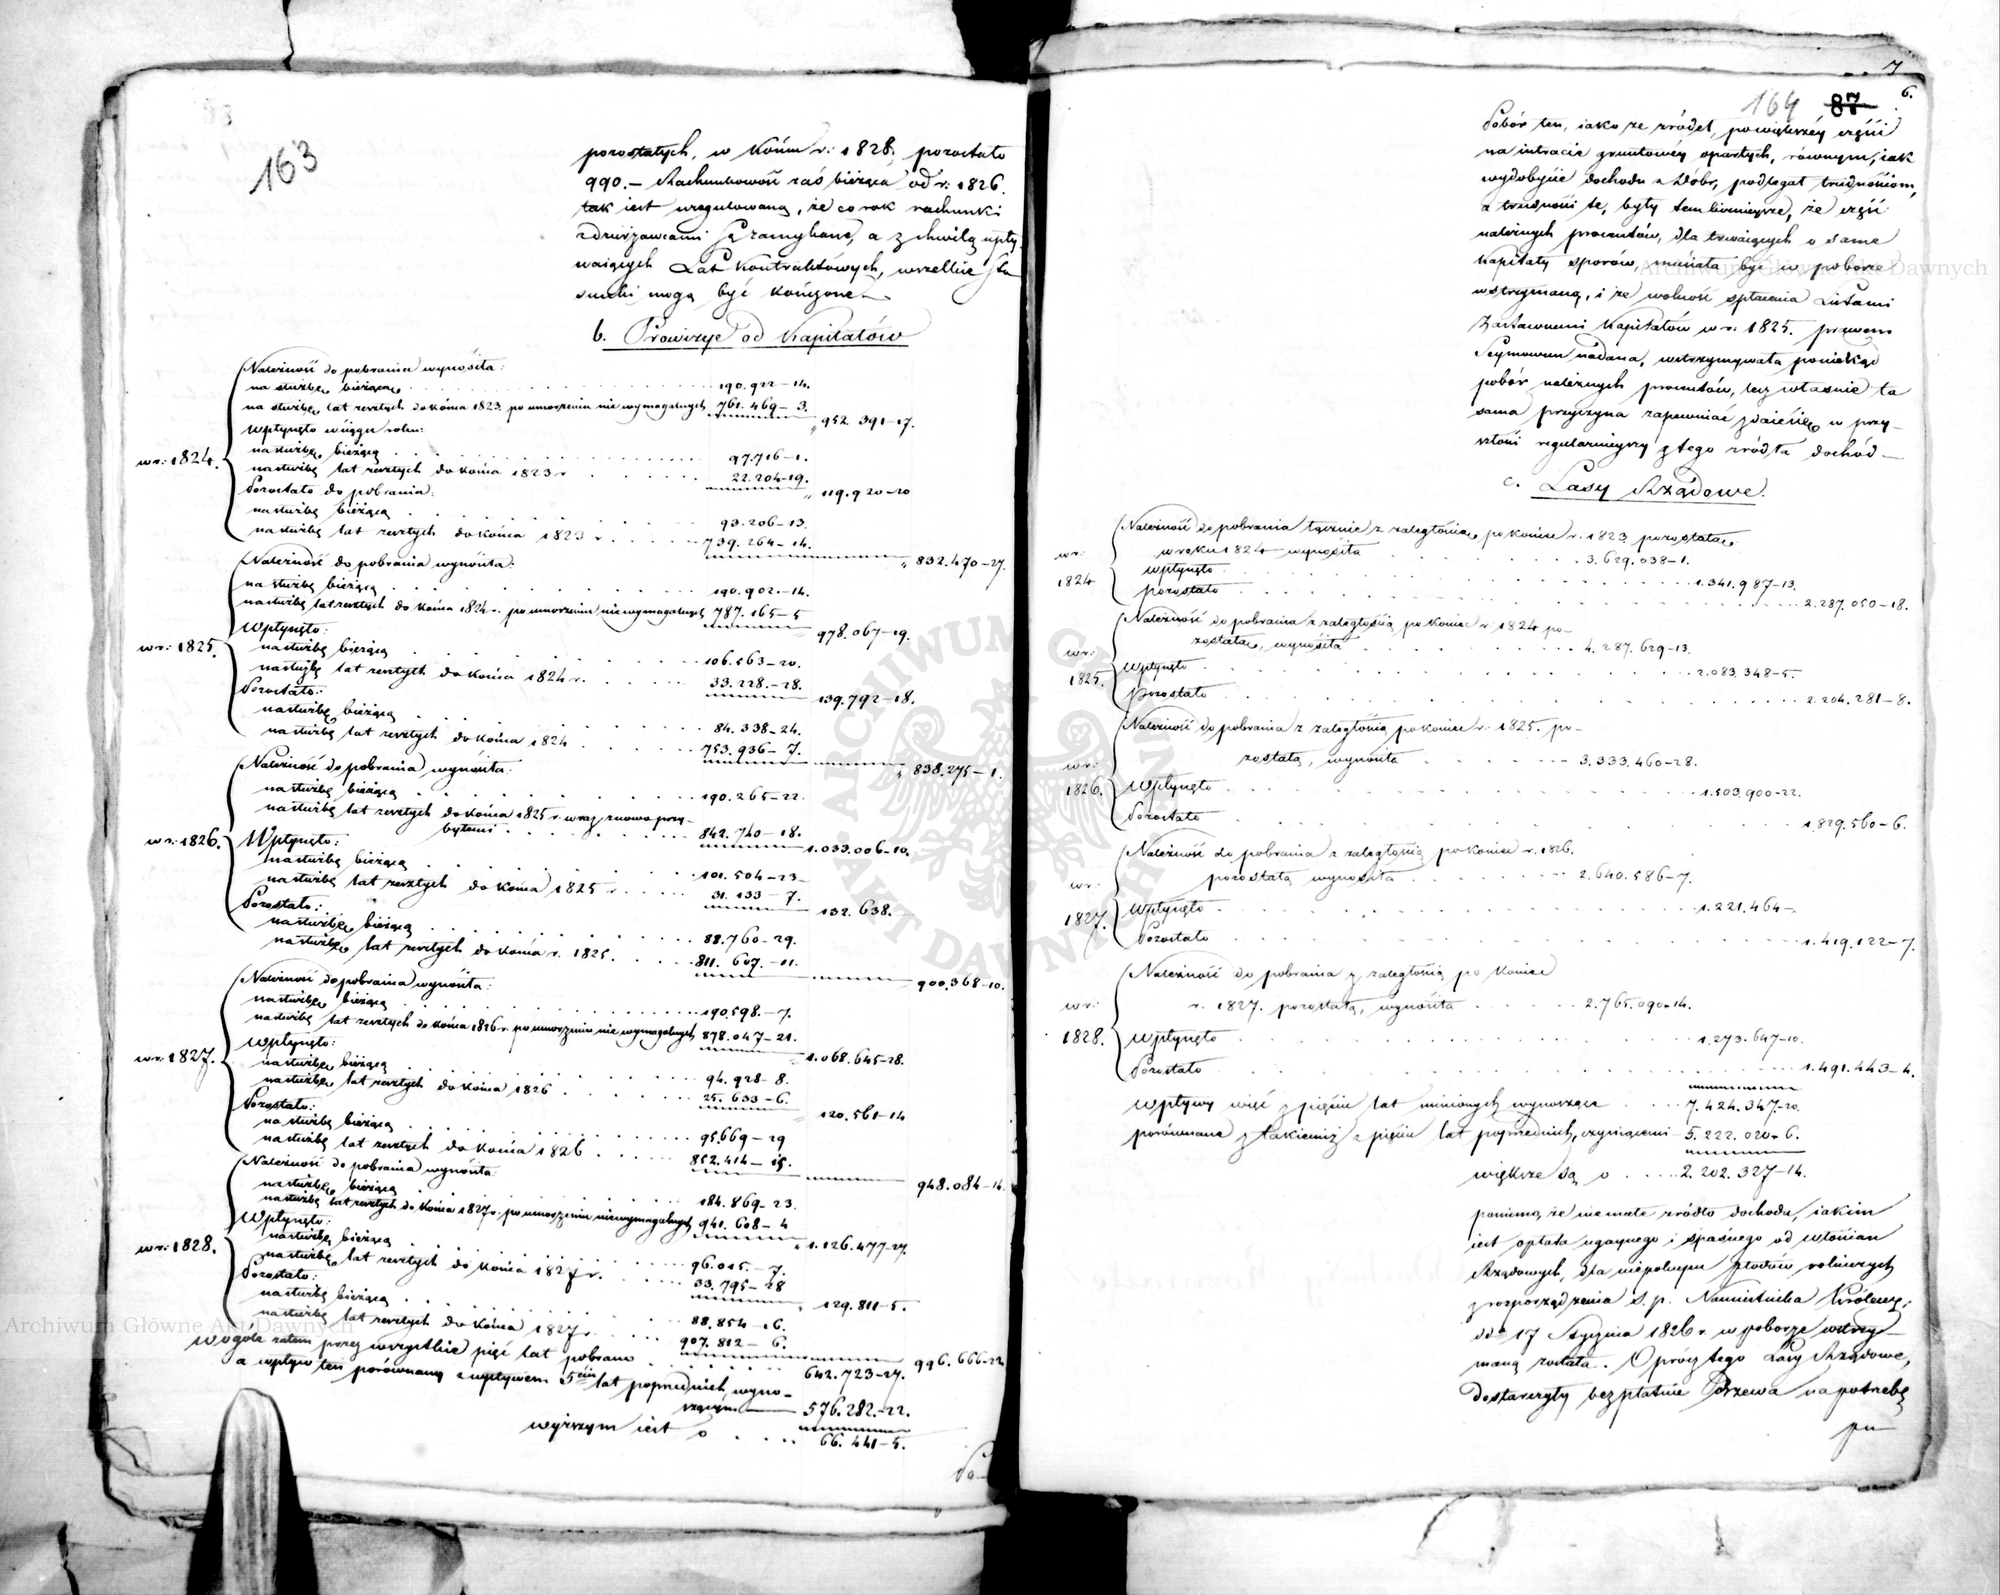 163
pozostałych, w końcu r: 1828, pozostało
990.– Rachunkowość zaś bieżąca od r: 1826.
tak iest uregulowaną, że co rok rachunki
z dzierżawcami są zamykane, a z chwilą upły-
waiących Lat Kontraktowych, wszelkie sto-
sunki mogą być kończone.–
b. Prowizye od Kapitałów
Należność do pobrania wynosiła:
na służbę bieżącą . . . 190.922–14.
na służbę lat zeszłych do końca 1823. po umorzeniu nie wymagalnych 761.469–3.
„ 952.391–17.
Wpłynęło w ciągu roku:
na służbę bieżącą . . . 97.716–1.
w r: 1824.
na służbę lat zeszłych do końca 1823 r . . . 22.204–19.
„ 119.920–20
Pozostało do pobrania:
na służbę bieżącą . . . 93.206–13.
na służbę lat zeszłych do końca 1823 r . . . 739.264–14.
„ 832.470–27.
Należność do pobrania wynosiła:
na służbę bieżącą . . . 190.902.–14.
na służbę lat zeszłych do końca 1824 r. po umorzeniu niewymagalnych 787.165–5
978.067–19.
Wpłynęło:
w r: 1825.
na służbę bieżącą . . . 106.563–20.
na służbę lat zeszłych do końca 1824 r. . . . 33.228.–28.
139.792–18.
Pozostało:
na służbę bieżącą . . . 84.338–24.
na służbę lat zeszłych do końca 1824 . . . 753.936–7.
„ 838.275–1.
Należność do pobrania wynosiła:
na służbę bieżącą . . . 190.265–22.
na służbę lat zeszłych do końca 1825 r. wraz znowo przy-
bytemi . . . 842.740–18.
1.033.006–10.
w r: 1826.
Wpłynęło:
na służbę bieżącą . . . 101.504–23
na służbę lat zeszłych do końca 1825 r . . . 31.133–7.
132.638.
Pozostało:
na służbę bieżącą . . . 88.760–29.
na służbę lat zeszłych do końca r. 1825. . . . 811.607.–11.
900.368–10.
Należność do pobrania wynosiła:
na służbę bieżącą . . . 190.598.–7.
na służbę lat zeszłych do końca 1826 r. po umorzeniu nie wymagalnych 878.047–21.
1.068.645–28.
w r: 1827.
Wpłynęło:
na służbę bieżącą . . . 94.928–8.
na służbę lat zeszłych do końca 1826 . . . 25.633–6.
120.561–14
Pozostało:
na służbę bieżącą . . . 95.669–29
na służbę lat zeszłych do końca 1826 . . . 852.414–15.
948.084–14.
Należność do pobrania wynosiła:
na służbę bieżącą . . . 184.869–23.
na służbę lat zeszłych do końca 1827 r. po umorzeniu niewymagalnych 941.608–4
1.126.477–27.
w r: 1828.
Wpłynęło:
na służbę bieżącą . . . 96.015–7.
na służbę lat zeszłych do końca 1827 r. . . . 33.795–28
„ 129.811–5.
Pozostało:
na służbę bieżącą . . . 88.854–16.
na służbę lat zeszłych do końca 1827 r. . . . 907.812–6.
996.666–22
w ogóle zatem przez wszystkie pięć lat pobrano . . . 642.723–27.
a wpływ ten porównany z wpływem 5cíu lat poprzednich, wyno-
szącym 576.282.–22.
wyższym iest o . . . 66.441–5.
Po–
7
6.
164 87
Pobór ten, iako ze źródeł, powiększéy części
na intracie gruntowéy opartych, równym, iak
wydobycie dochodu z Dóbr, podlegał trudnościom,
a trudności te, były tem liczniejsze, że część
należnych procentów, dla trwaiących o same
Kapitały sporów, musiała być w poborze
wstrzymaną, i że wolność spłacenia Listami
Zastawnemi Kapitałów w r: 1825. prawem
Seymowem nadana, wstrzymywała poniekąd
pobór należnych procentów, lecz właśnie ta
sama przyczyna zapewniać zdaie się w przy-
szłości regularnieyszy z tego źródła dochód –
c. Lasy Rządowe.
Należność do pobrania łącznie z zaległością po końcu r. 1823 pozostałą,
w roku 1824 wynosiła . . . 3.629.038–1.
w r:
1824
wpłynęło . . . 1.341.987–13.
pozostało . . . 2.287.050–18.
Należność do pobrania z zaległością po końcu r. 1824 po-
zostałą, wynosiła . . . 4.287.629–13.
w r:
1825.
Wpłynęło . . . 2.083.348–5.
Pozostało . . . 2.204.281–8.
Należność do pobrania z zaległością po końcu r: 1825. po-
zostałą, wynosiła . . . 3.333.460–28.
w r:
1826.
Wpłynęło . . . 1.503.900–22.
Pozostało . . . 1.829.560–6.
Należność do pobrania z zaległością po końcu r. 1826.
pozostałą wynosiła . . . 2.640.586–7.
w r:
1827.
Wpłynęło . . . 1.221.464–
Pozostało . . . 1.419.122–7.
Należność do pobrania z zaległością po końcu
r. 1827. pozostałą, wynosiła . . . 2.765.090–14.
w r:
1828.
Wpłynęło . . . 1.273.647–10.
Pozostało . . . 1.491.443–4.
Wpływy więc z pięciu lat minionych wynoszące . . . 7.424.347–20.
porównane z takiemiż z pięciu lat poprzednich, czyniącemi – 5.222.020–6.
większe są o . . . 2.202.327–14.
pomimo, że niemałe źródło dochodu, iakim
iest opłata ugaynego i spasnego od włościan
Rządowych, dla niepolnym płodów rolniczych
z rozporządzenia ś. p. Namiestnika Królewsk:
dd. 17 Stycznia 1826 r. w poborze wstrzy-
maną została. Oprócz tego Lasy Rządowe,
dostarczyły bezpłatnie Drzewa na potrzebę
Archiwum Główne Akt Dawnych
Archiwum Główne Akt Dawnych
ARCHIWUM GŁÓWNE AKT DAWNYCH